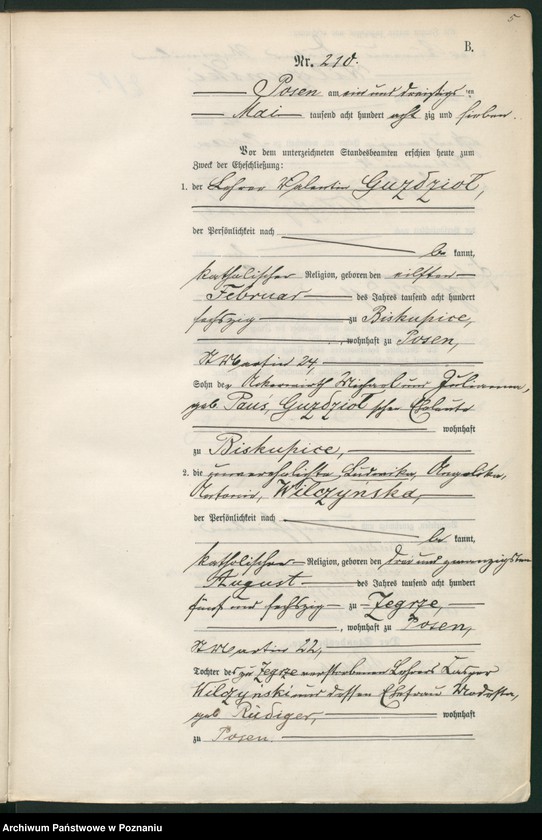 5
B.
Nr. 210.
Posen am ein und dreißigsten
Mai tausend acht hundert acht zig und sieben.
Vor dem unterzeichneten Standesbeamten erschien heute zum
Zweck der Eheschließung:
1. der Lehrer Valentin Guździoł,
der Persönlichkeit nach
be kannt,
katholischer Religion, geboren den eilften
Februar des Jahres tausend acht hundert
sechszig zu Biskupice,
, wohnhaft zu Posen,
St Martin 24,
Sohn der Ackerwirth Michael und Julianna,
geb. Paus, Guździoł'schen Eheleute
wohnhaft
zu Biskupice,
2. die unverehelichte Ludovika, Angelika,
Antonie, Wilczyńska,
der Persönlichkeit nach
be kannt,
katholischer Religion, geboren den drei und zwanzigsten
August des Jahres tausend acht hundert
fünf und sechszig zu Zegrze,
, wohnhaft zu Posen,
St Martin 22,
Tochter des zu Zegrze verstorbenen Lehrers Kasper
Wilczyński und dessen Ehefrau Modesta,
geb Rüdiger, wohnhaft
zu Posen.
Archiwum Państwowe w Poznaniu